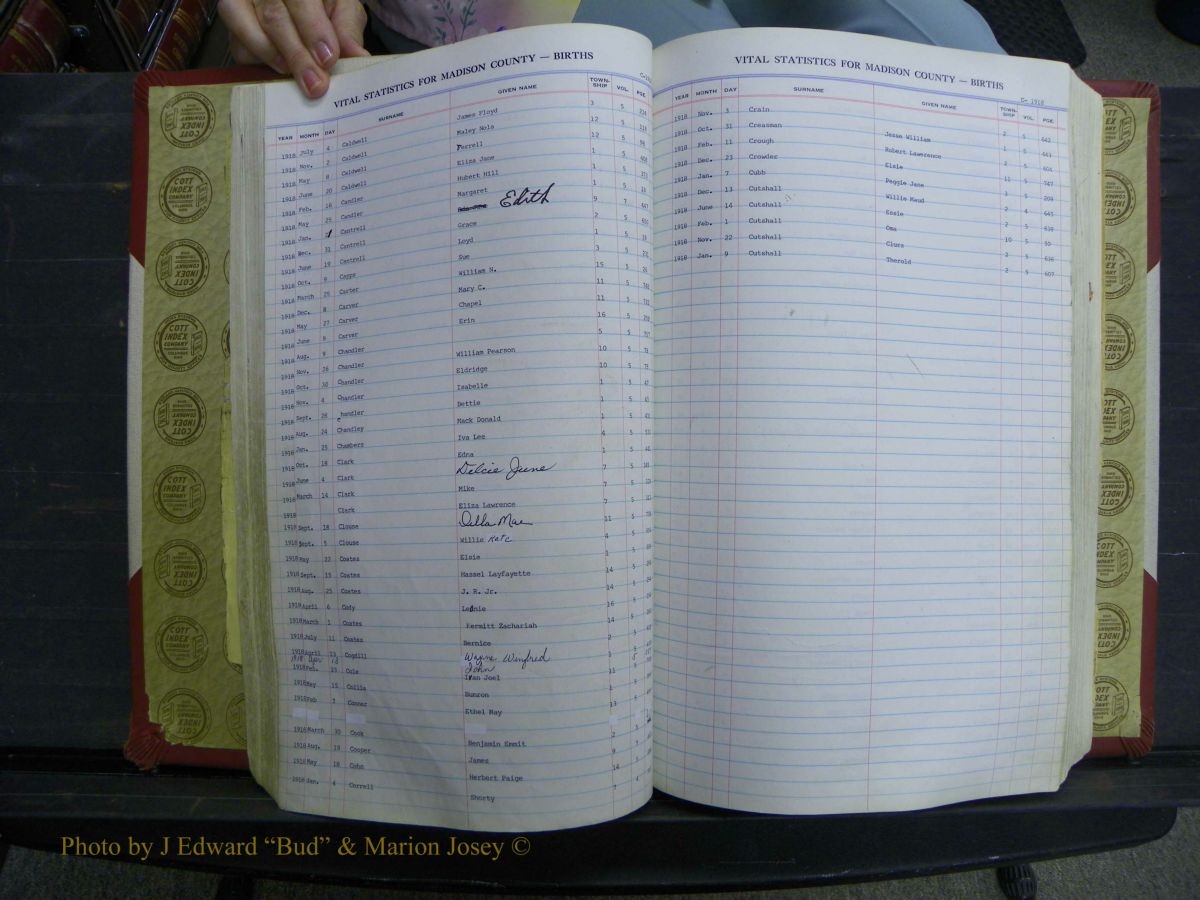 VITAL STATISTICS FOR MADISON COUNTY — BIRTHS
YEAR MONTH DAY SURNAME GIVEN NAME TOWN-SHIP VOL. PGE
1918 July 4 Caldwell James Floyd 3 5
1918 Nov. 2 Caldwell Maley Nola 12 5
1918 May 8 Caldwell Ferrell 12 5
1918 June 20 Caldwell Eliza Jane 1 5
1918 Feb. 16 Candler Hubert Hill 1 5
1918 May 25 Candler Margaret 1 5
1918 Jan. Cantrell Edith 9
1918 Dec. 31 Cantrell Grace 2 5
1918 June 19 Cantrell Loyd 1 5
1918 Oct. 9 Capps Sue 3 5
1918 March 25 Carter William N. 15 5
1918 Dec. 8 Carver Mary C. 11 5
1918 May 27 Carver Chapel 11 5
1918 June 8 Carver Erin 16 5
1918 Aug. 9 Chandler William Pearson 5 5
1918 Nov. 28 Chandler Eldridge 10 5
1918 Oct. 30 Chandler Isabelle 10 5
1918 Nov. 4 Chandler Dettie 1 5
1918 Sept. 28 Chandler Mack Donald 1 5
1918 Aug. 24 Chandley Iva Lee 1 5
1918 Jan. 25 Chambers Edna 4 5
1918 Oct. 18 Clark Delcie June 1 5
1918 June 4 Clark Mike 7 5
1918 March 14 Clark Eliza Lawrence 7 5
1918 Clark Della Mae 7 5
1918 Sept. 18 Clouse Willie Kate 11 5
1918 Sept. 5 Clouse Elsie 4 5
1918 May 22 Coates Hassel Layfayette 1 5
1918 Sept. 15 Coates J. R. Jr. 14 5
1918 Aug. 25 Coates Leonie 14 5
1918 April 6 Cody Kermitt Zachariah 16 5
1918 March 1 Coates Bernice 14 5
1918 July 11 Coates Wayne Winfred 2 5
1918 April 13 Cogdill John 1 5
1918 Apr 18
1918 Feb. 23 Cole Ivan Joel 11 5
1918 May 15 Collis Bunron 1 5
1918 Feb 3 Conner Ethel May 13 5
1918 March 30 Cook Benjamin Emmit 2 5
1918 Aug. 19 Cooper James 9
1918 May 18 Cohn Herbert Paige 14 5
1918 Jan. 4 Correll Shorty 7
VITAL STATISTICS FOR MADISON COUNTY — BIRTHS
C- 1918
YEAR MONTH DAY SURNAME GIVEN NAME TOWN-SHIP VOL. PGE
1918 Nov. 3 Crain Jesse William 2 5 642
1918 Oct. 31 Creasman Robert Lawrence 1 5 441
1918 Feb. 11 Crough Elsie 2 5 604
1918 Dec. 23 Crowder Peggie Jane 11 5 747
1918 Jan. 7 Cubb Willie Maud 3 5 209
1918 Dec. 13 Cutshall Essie 2 4 645
1918 June 14 Cutshall Oma 2 5 638
1918 Feb. 1 Cutshall Clura 10 5 50
1918 Nov. 22 Cutshall Therold 2 5 636
1918 Jan. 9 Cutshall 2 5 607
COTT INDEX COMPANY COLUMBUS OHIO
Photo by J Edward “Bud” & Marion Josey ©